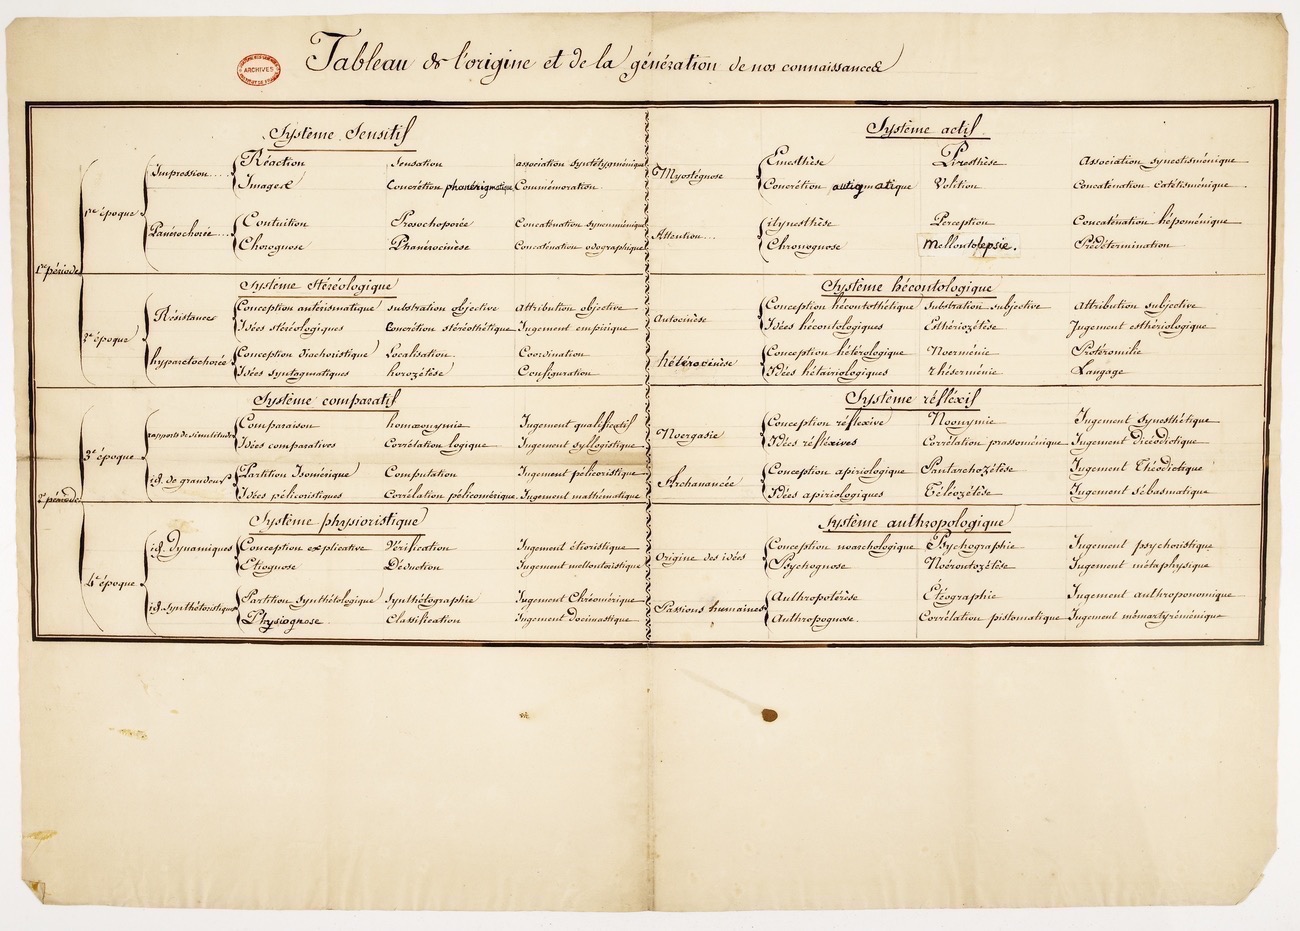 Tableau de l'origine et de la génération de nos connaissances
ARCHIVES
Système Sensitif
Système actif
1re période
1re époque
Impression....
Réaction Sensation association syntélygménique
Images Concrétion phanérigmatique Commémoration
Panérochorée...
Contuition Prosochoporée Concaténation synumménique
Chorognose Phanérocinèse Concaténation odographique
Myostégnose
Emesthèse Piresthèse Association synectisménique
Concrétion autigmatique Volition Concaténation catétisménique
Attention...
itynesthèse Perception Concaténation hépoménique
Chronognose Mellontolepsie. Prédétermination
Système Stéréologique
Système hécontologique
2e époque
Résistances
Conception antérismatique substration objective Attribution objective
Idées stéréologiques Concrétion stéréothétique Jugement empirique
hyparctochorée
Conception diachoristique Localisation. Coordination
Idées syntagmatiques horozétèse Configuration
Autocinèse
Conception hécontothétique Substration subjective Attribution subjective
Idées hécontologiques Esthériozétèse Jugement esthériologique
hétérocinèse
Conception hétérologique Noerménie Protéromilie
Idées hétairiologiques rhéserménie Langage
Système comparatif
Système réfléxif
2e période
3e époque
rapports de similitude
Comparaison homœonymie Jugement qualificatif
Idées comparatives Corrélation logique Jugement syllogistique
id. de grandeurs
Partition Isomérique Computation Jugement pélicoristique
Idées pélicoristiques Corrélation pélicomérique Jugement mathématique
Noergasie
Conception réflexive Noonymie Jugement Synesthétique
Idées réfléxives Corrélation prassoménique Jugement dicéodotique
Archanancée
Conception apiriologique Pantarchozétèse Jugement Théodictique
Idées apiriologiques Téléozétèse Jugement sébasmatique
Système physioristique
Système anthropologique
4e époque
id. dynamiques
Conception explicative Vérification Jugement étioristique
Etiognose Déduction Jugement mellontoristique
id. synthétoristiques
Partition Synthétologique Synthétographie Jugement Chréomérique
Physiognose. Classification Jugement docimastique
Origine des idées
Conception noarchologique Psychographie Jugement psychoristique
Psychognose Noérontozétèse Jugement métaphysique
Passions humaines
Anthropotérèse Étéographie Jugement anthroponomique
Anthropognose. Corrélation pistomatique Jugement mémartyréménique